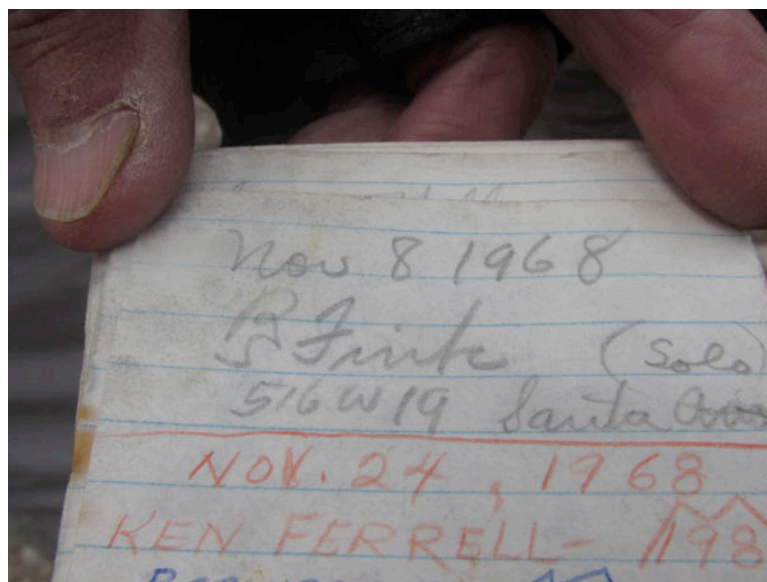 Nov 8 1968
B Fink (Solo)
516 W 19 Santa
NOV. 24, 1968
KEN FERRELL- 198